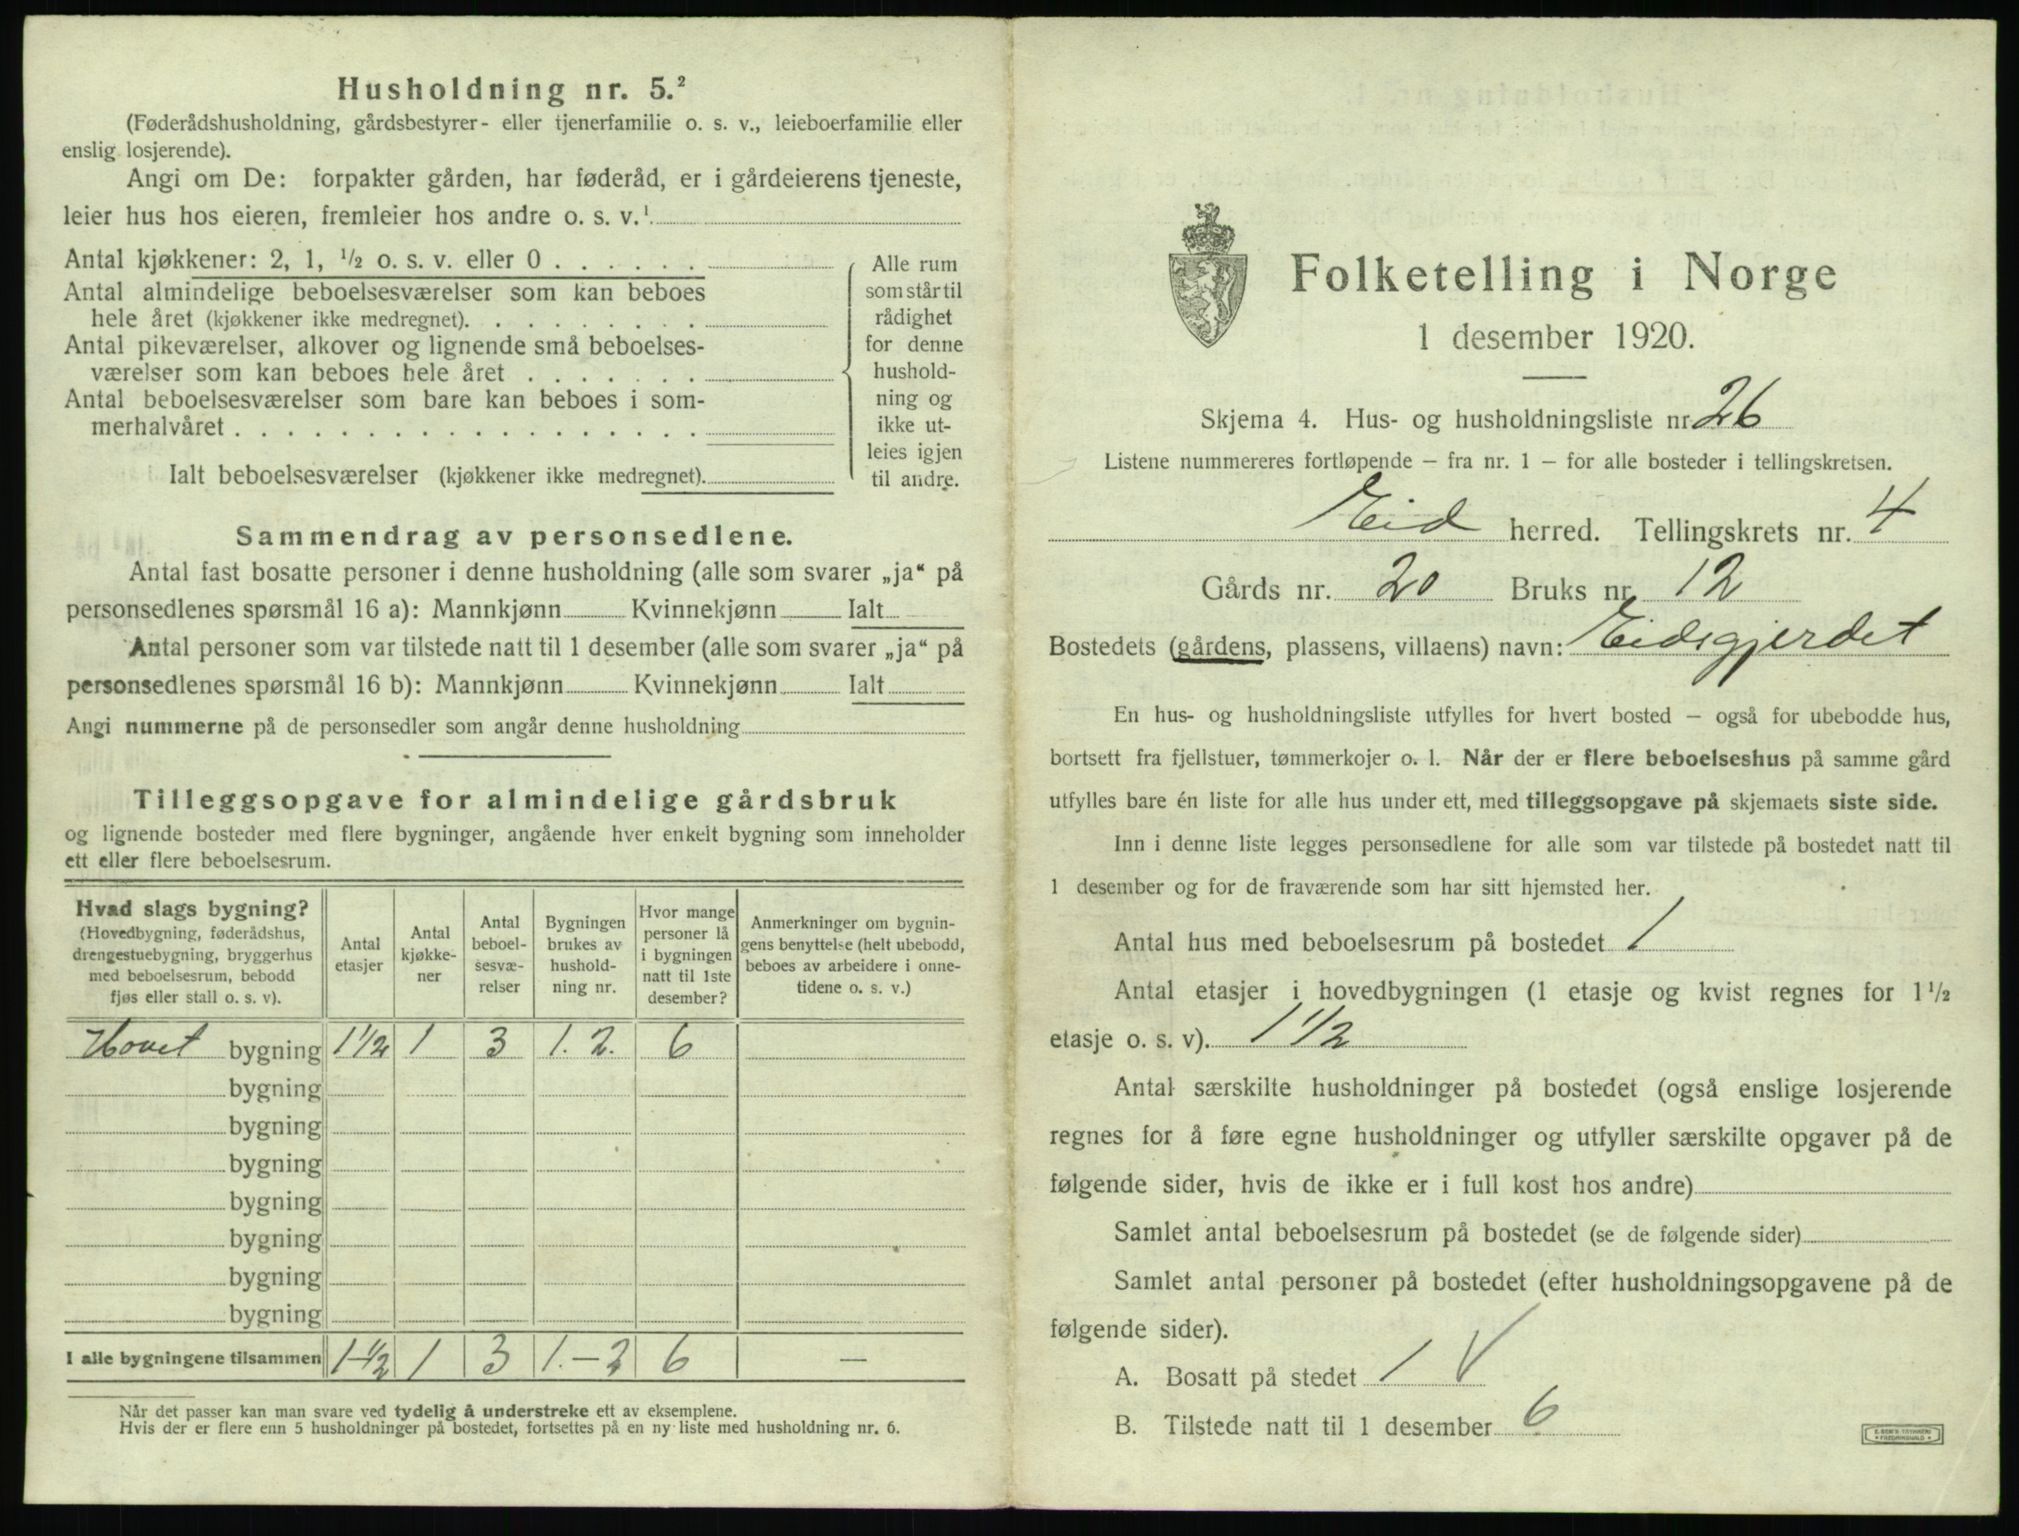 Husholdning nr. 5.²
(Føderådshusholdning, gårdsbestyrer- eller tjenerfamilie o. s. v., leieboerfamilie eller
enslig losjerende).
Angi om De: forpakter gården, har føderåd, er i gårdeierens tjeneste,
leier hus hos eieren, fremleier hos andre o. s. v.¹
Antal kjøkkener: 2, 1, ½ o. s. v. eller 0 . . . . . .
Antal almindelige beboelsesværelser som kan beboes
hele året (kjøkkener ikke medregnet). . . . . . . . .
Antal pikeværelser, alkover og lignende små beboelses-
værelser som kan beboes hele året . . . . . . .
Antal beboelsesværelser som bare kan beboes i som-
merhalvåret . . . . . . . . . . . . . . . . . .
Ialt beboelsesværelser (kjøkkener ikke medregnet).
Alle rum
som står til
rådighet
for denne
hushold-
ning og
ikke ut-
leies igjen
til andre.
Sammendrag av personsedlene.
Antal fast bosatte personer i denne husholdning (alle som svarer „ja“ på
personsedlenes spørsmål 16 a): Mannkjønn Kvinnekjønn Ialt
Antal personer som var tilstede natt til 1 desember (alle som svarer „ja“ på
personsedlenes spørsmål 16 b): Mannkjønn Kvinnekjønn Ialt
Angi nummerne på de personsedler som angår denne husholdning
Tilleggsopgave for almindelige gårdsbruk
og lignende bosteder med flere bygninger, angående hver enkelt bygning som inneholder
ett eller flere beboelsesrum.
Hvad slags bygning?
(Hovedbygning, føderådshus,
drengestuebygning, bryggerhus
med beboelsesrum, bebodd
fjøs eller stall o. s. v).
Antal
etasjer
Antal
kjøkke-
ner
Antal
beboel-
sesvæ-
relser
Bygningen
brukes av
hushold-
ning nr.
Hvor mange
personer lå
i bygningen
natt til 1ste
desember?
Anmerkninger om bygnin-
gens benyttelse (helt ubebodd,
beboes av arbeidere i onne-
tidene o. s. v.)
Hovet bygning 1½ 1 3 1. 2. 6
bygning
bygning
bygning
bygning
bygning
bygning
bygning
I alle bygningene tilsammen 1-½ 1 3 1.-2 6 —
Når det passer kan man svare ved tydelig å understreke ett av eksemplene.
Hvis der er flere enn 5 husholdninger på bostedet, fortsettes på en ny liste med husholdning nr. 6.
Folketelling i Norge
1 desember 1920.
Skjema 4. Hus- og husholdningsliste nr. 26
Listene nummereres fortløpende – fra nr. 1 – for alle bosteder i tellingskretsen.
Eid herred. Tellingskrets nr. 4
Gårds nr. 20 Bruks nr. 12
Bostedets (gårdens, plassens, villaens) navn: Eidsgjerdet
En hus- og husholdningsliste utfylles for hvert bosted – også for ubebodde hus,
bortsett fra fjellstuer, tømmerkojer o. l. Når der er flere beboelseshus på samme gård
utfylles bare én liste for alle hus under ett, med tilleggsopgave på skjemaets siste side.
Inn i denne liste legges personsedlene for alle som var tilstede på bostedet natt til
1 desember og for de fraværende som har sitt hjemsted her.
Antal hus med beboelsesrum på bostedet 1
Antal etasjer i hovedbygningen (1 etasje og kvist regnes for 1½
etasje o. s. v). 1 ½
Antal særskilte husholdninger på bostedet (også enslige losjerende
regnes for å føre egne husholdninger og utfyller særskilte opgaver på de
følgende sider, hvis de ikke er i full kost hos andre)
Samlet antal beboelsesrum på bostedet (se de følgende sider)
Samlet antal personer på bostedet (efter husholdningsopgavene på de
følgende sider).
A. Bosatt på stedet 1 V
B. Tilstede natt til 1 desember 6